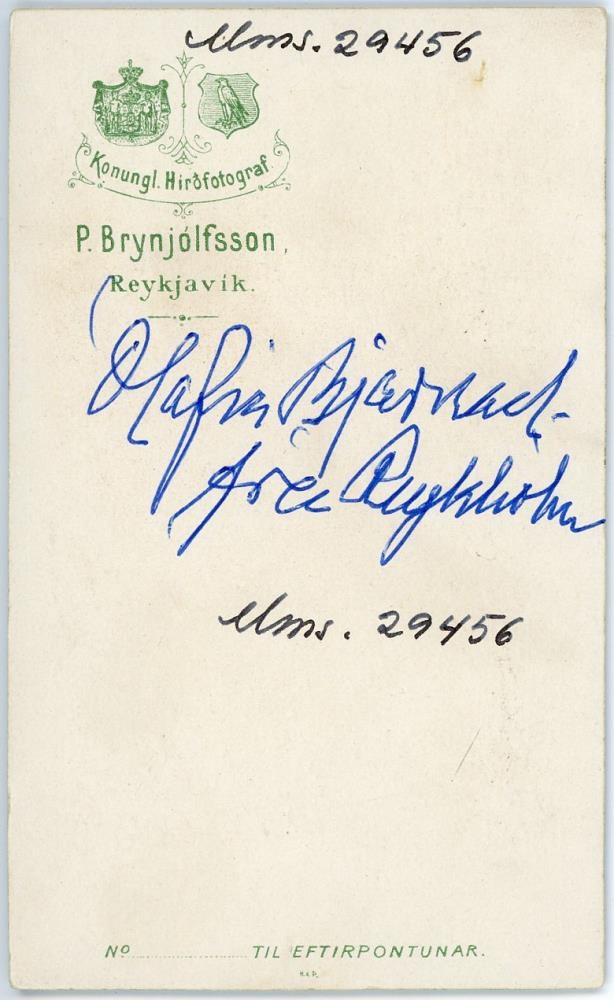 Mms. 29456
Konungl. Hirðfotograf
P. Brynjólfsson,
Reykjavík.
Olafia Bjarnad.
frá Reykhólum
Mms. 29456
No TIL EFTIRPONTUNAR.